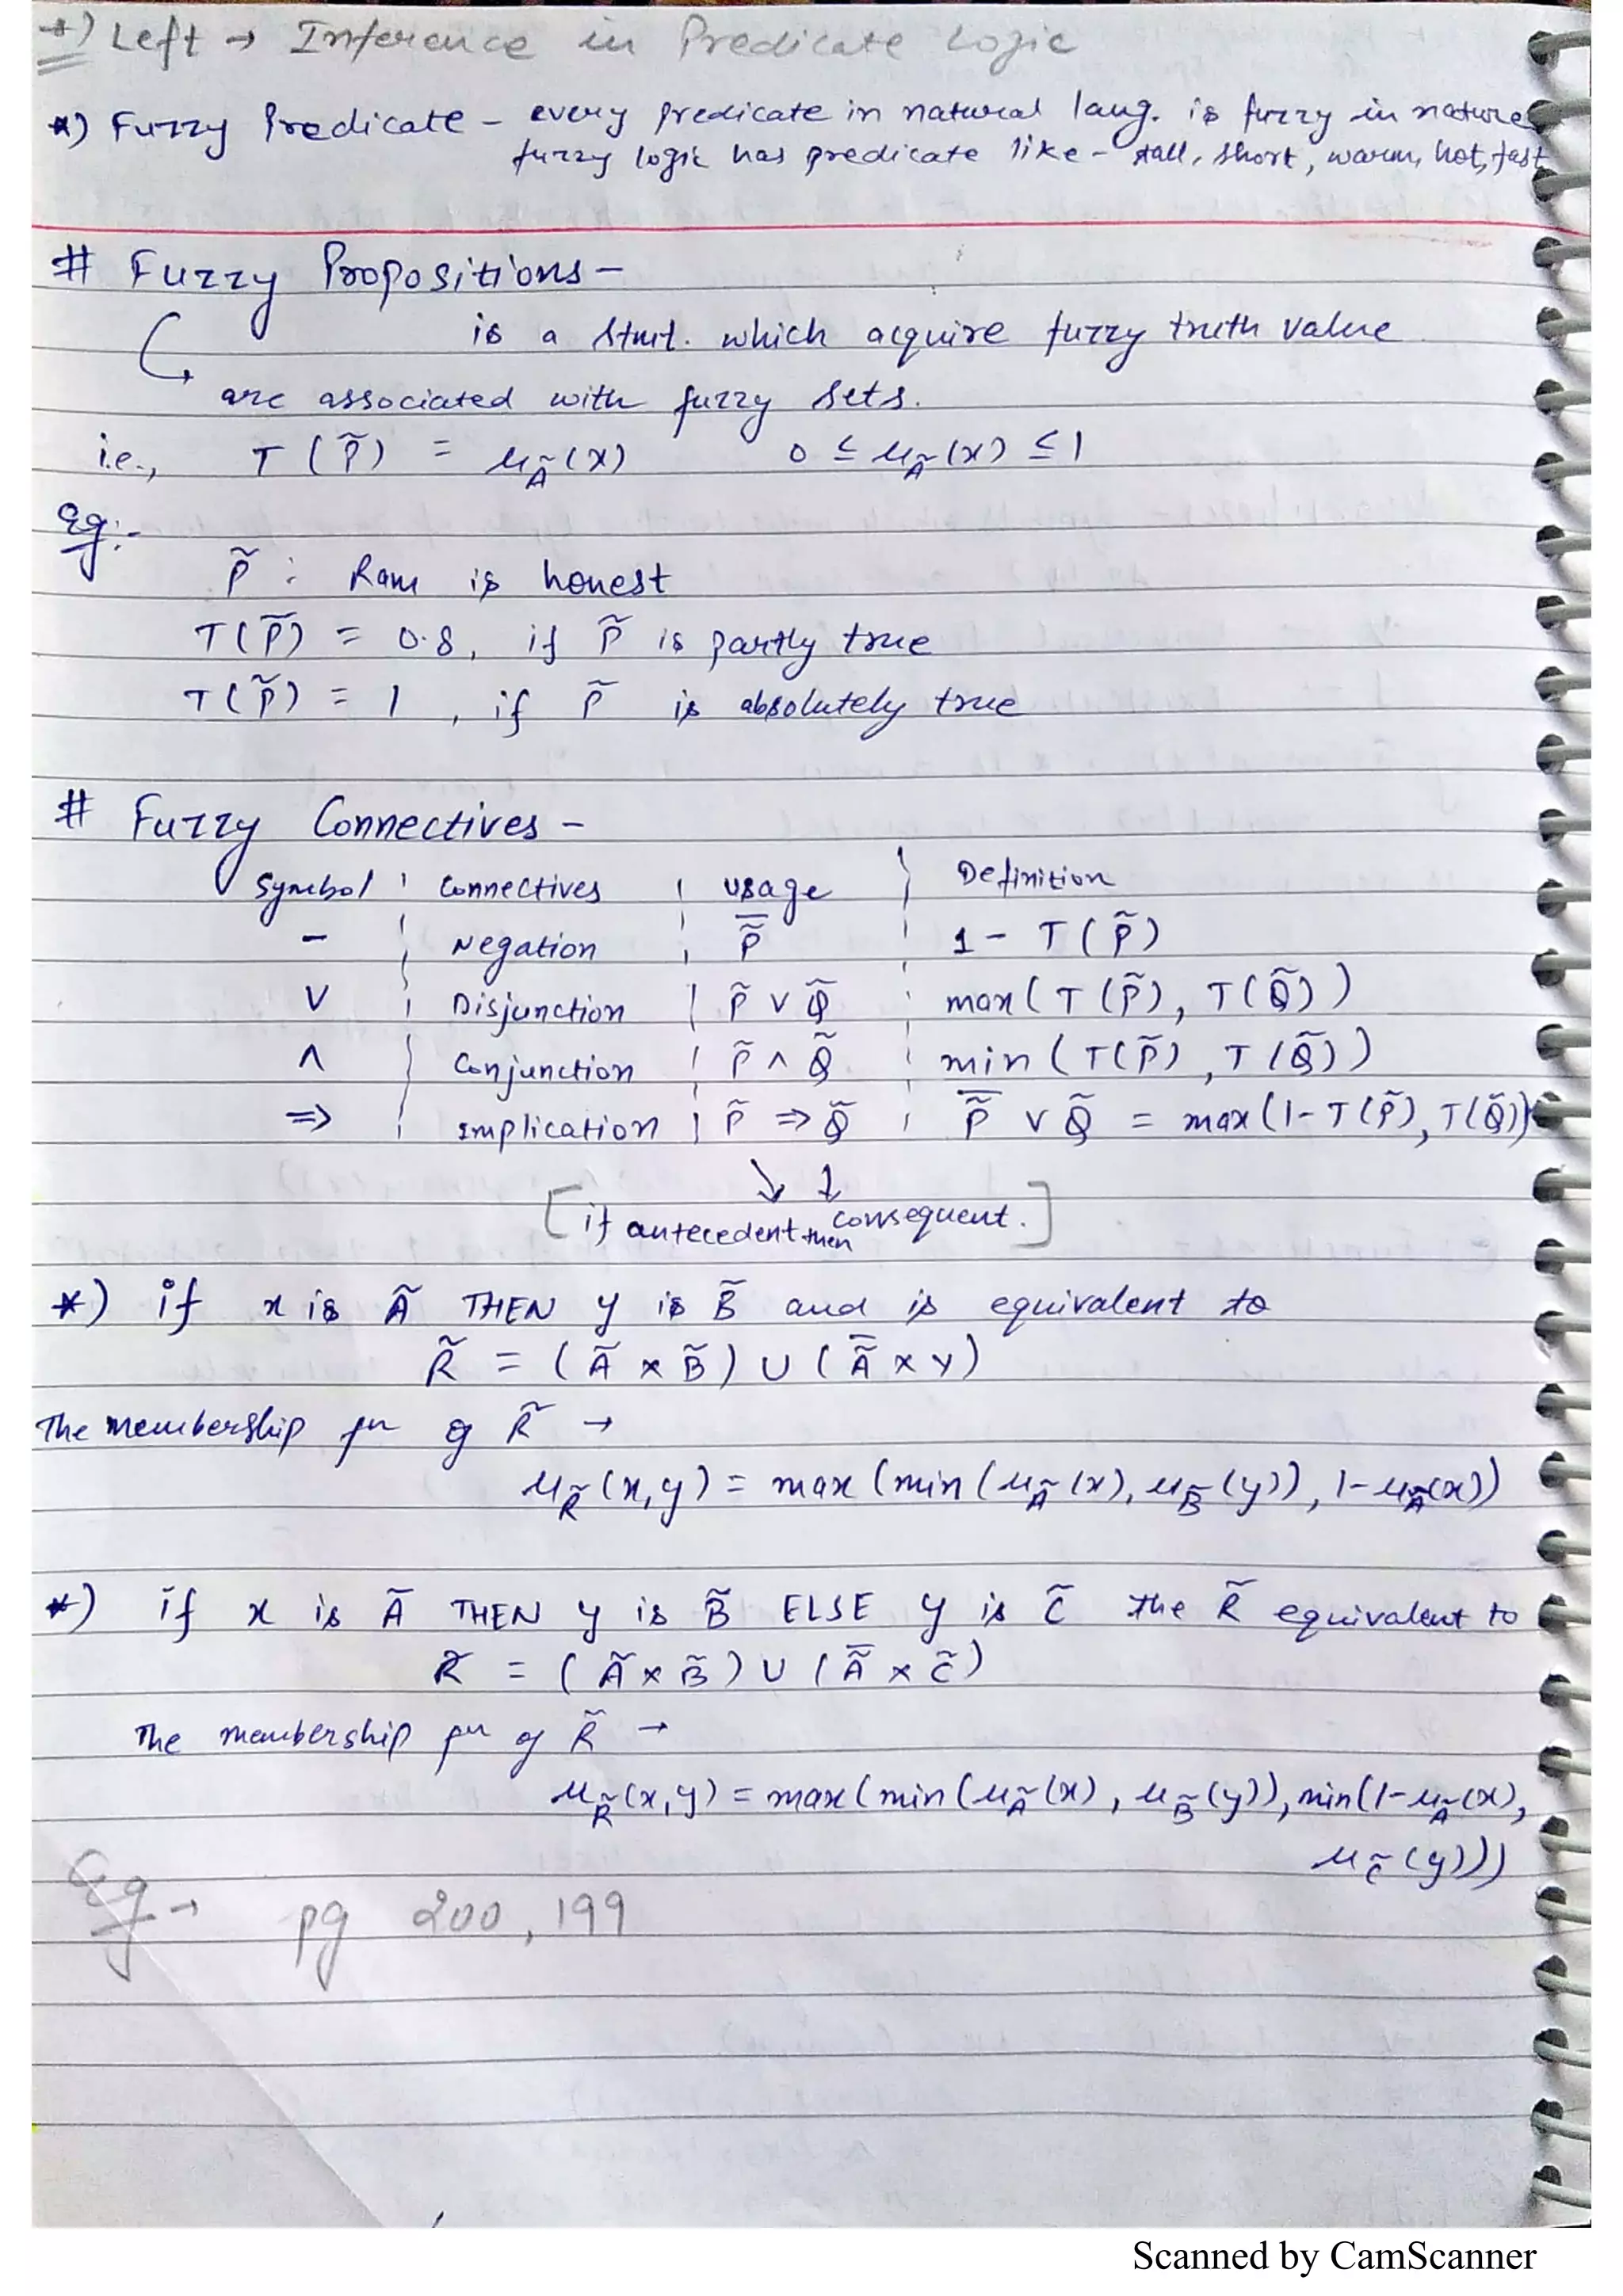 *) Left → Inference in Predicate Logic
*) Fuzzy Predicate - every predicate in natural lang. is fuzzy in nature
fuzzy logic has predicate like - tall, short, warm, hot, fast
# Fuzzy Propositions -
is a stmt. which acquire fuzzy truth value
↳ are associated with fuzzy sets.
i.e., T(P̃) = μ_Ã(x) 0 ≤ μ_Ã(x) ≤ 1
Eg:-
P̃ : Ram is honest
T(P̃) = 0.8, if P̃ is partly true
T(P̃) = 1, if P̃ is absolutely true
# Fuzzy Connectives -
Symbol | Connectives | usage | Definition
- | Negation | P̃̅ | 1 - T(P̃)
∨ | Disjunction | P̃ ∨ Q̃ | max(T(P̃), T(Q̃))
∧ | Conjunction | P̃ ∧ Q̃ | min(T(P̃), T(Q̃))
⇒ | Implication | P̃ ⇒ Q̃ | P̃̅ ∨ Q̃ = max(1-T(P̃), T(Q̃))
↘ ↓
[if antecedent then consequent.]
*) if x is Ã THEN y is B̃ and is equivalent to
R̃ = (Ã × B̃) ∪ (Ã̅ × Y)
The membership fn of R̃ →
μ_R̃(x,y) = max(min(μ_Ã(x), μ_B̃(y)), 1-μ_Ã(x))
*) if x is Ã THEN y is B̃ ELSE y is C̃ the R̃ equivalent to
R̃ = (Ã × B̃) ∪ (Ã̅ × C̃)
The membership fn of R̃ →
μ_R̃(x,y) = max(min(μ_Ã(x), μ_B̃(y)), min(1-μ_Ã(x),
μ_C̃(y)))
Eg → pg 200, 199
Scanned by CamScanner